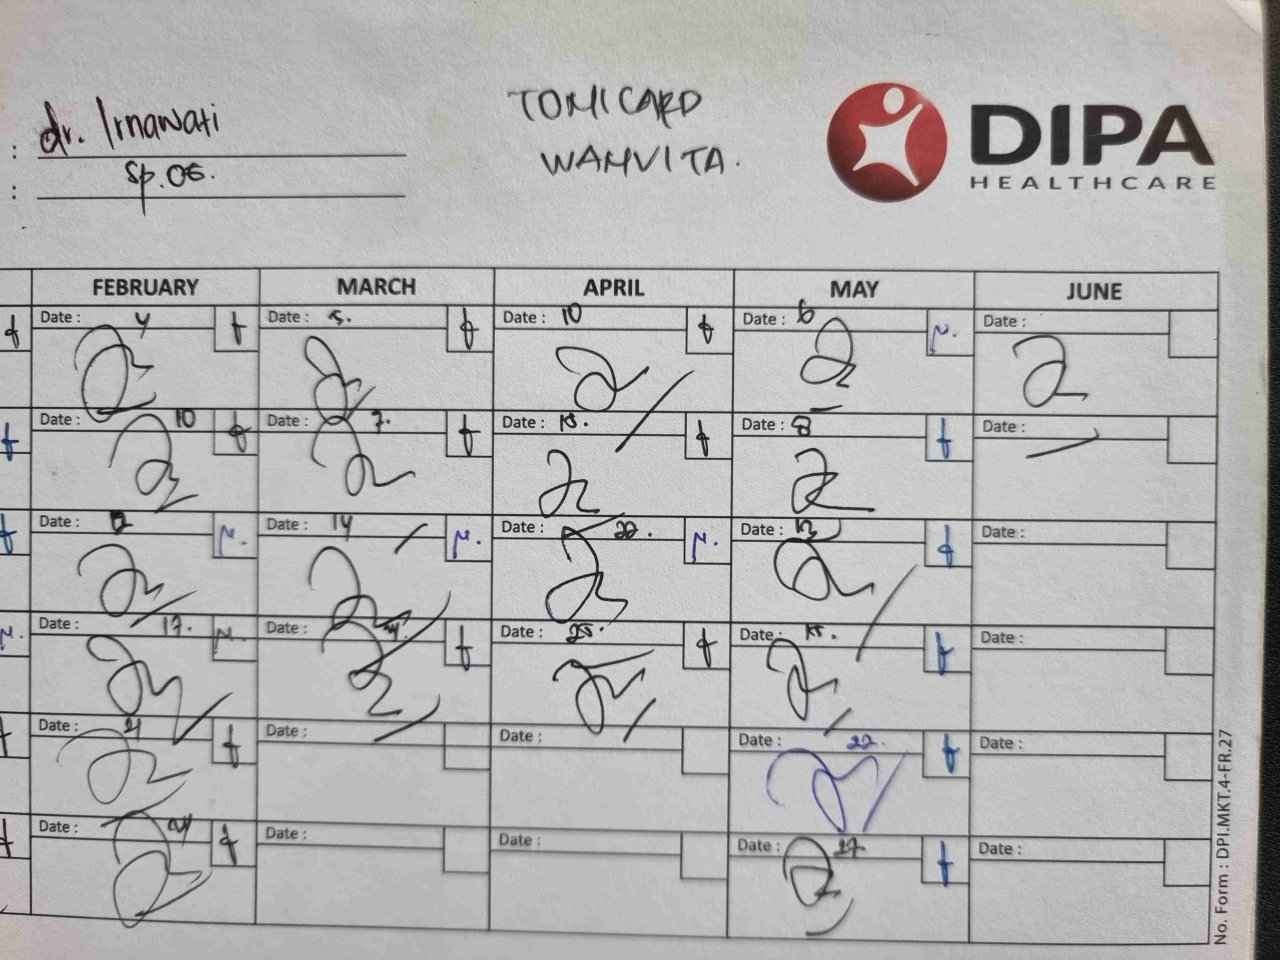 : dr. Irnawati
: Sp.OG.
TOMICARD
WAHVITA.
DIPA
HEALTHCARE
FEBRUARY MARCH APRIL MAY JUNE
Date : 4 Date : 5. Date : 10 Date : 6 Date :
Date : 10 Date : 7. Date : 15. Date : 8 Date :
Date : Date : 14 Date : 22. Date : 13 Date :
Date : 17. Date : Date : 25. Date : 15. Date :
Date : 21 Date : Date : Date : 22. Date :
Date : 24 Date : Date : Date : 27 Date :
No. Form : DPI.MKT.4-FR.27